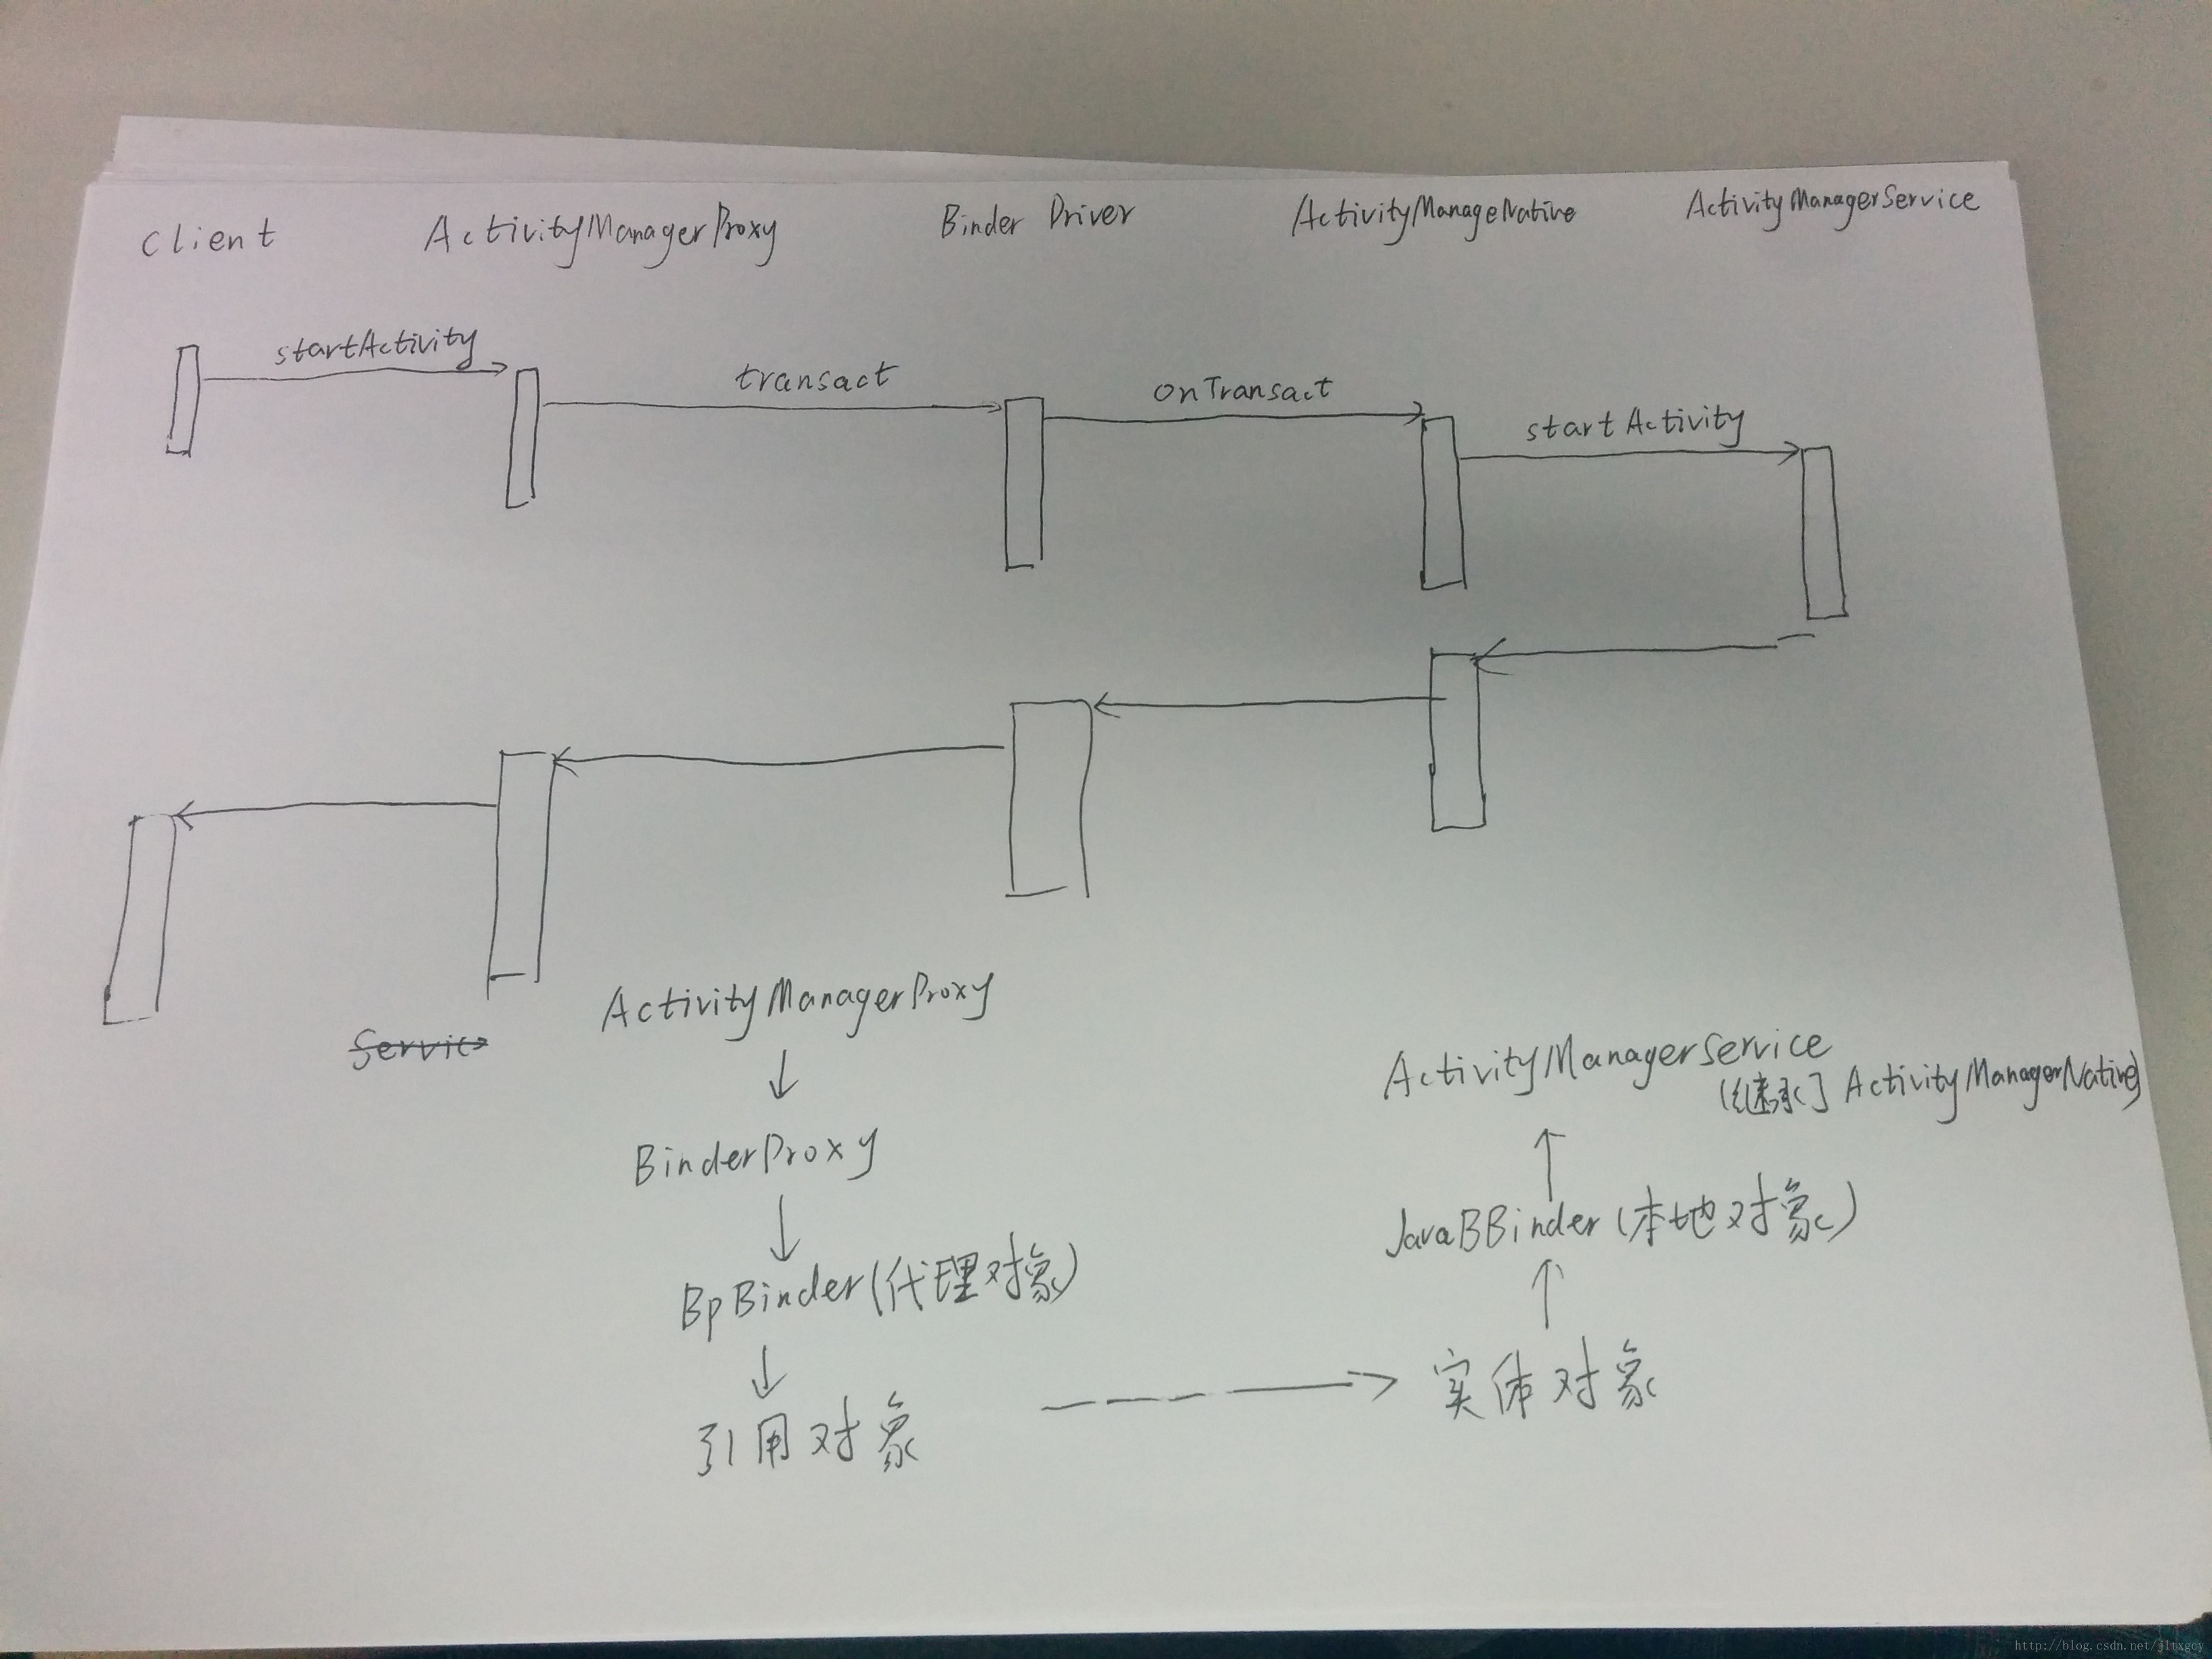 Client ActivityManagerProxy Binder Driver ActivityManageNative ActivityManagerService
startActivity transact onTransact startActivity
ActivityManagerProxy
Servic
ActivityManagerService
(继承] ActivityManagerNative)
BinderProxy
JavaBBinder (本地对象)
BpBinder (代理对象)
实体对象
引用对象
http://blog.csdn.net/jltxgcy